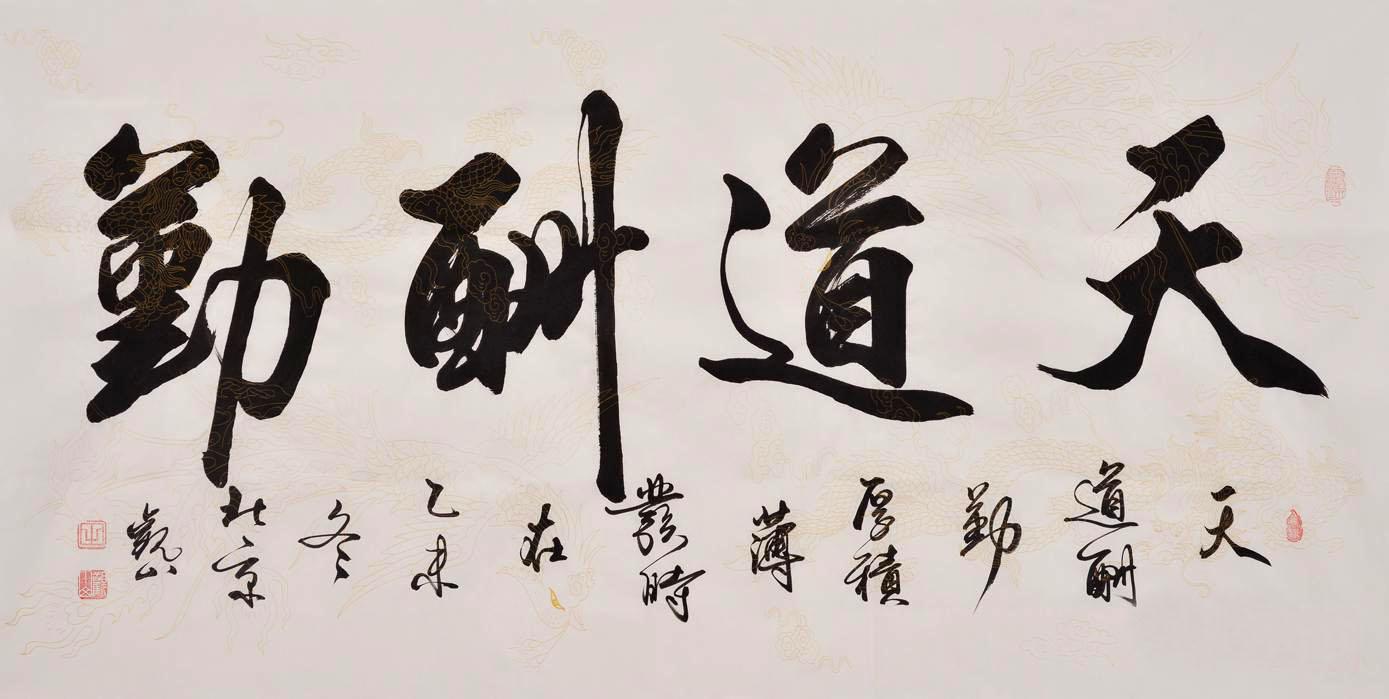 天道酬勤
天
道酬
勤
厚積
薄
發時
在
乙未
冬
北京
觀山